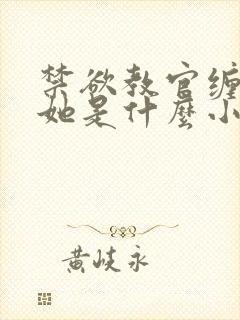 禁欲教官缠
她是什麼小
黄岐永